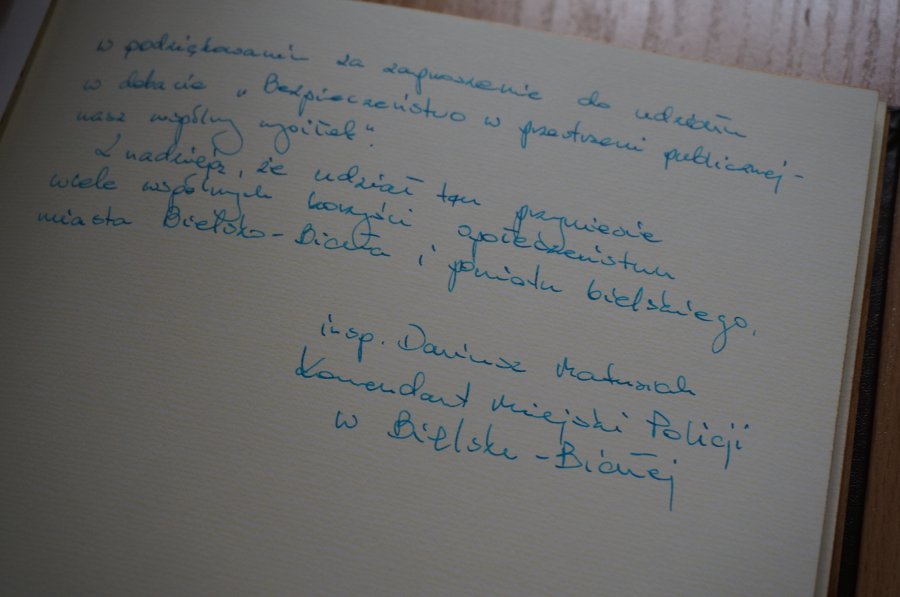 w podziękowaniu za zaproszenie do udziału
w debacie „Bezpieczeństwo w przestrzeni publicznej -
nasz wspólny wysiłek".
Z nadzieją, że udział ten przyniesie
wiele wspólnych korzyści społeczeństwu
miasta Bielsko-Biała i powiatu bielskiego.
insp. Dariusz Matusiak
Komendant Miejski Policji
w Bielsku-Białej